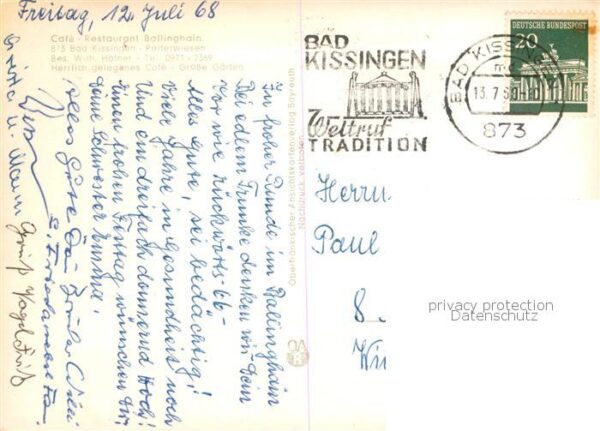 Freitag, 12. Juli 68
Café - Restaurant Ballinghain
873 Bad Kissingen - Reiterwiesen
Bes. Wilh. Hafner - Tel. 0971 - 2369
Herrlich gelegenes Café - Große Gärten
In froher Runde im Ballinghain
Bei edlem Trunke denken wir Dein
Vor wie rückwärts - 66 -
Alles Gute, sei bedächtig!
Viele Jahre in Gesundheit noch
Und ein dreifach donnernd Hoch!
Einen frohen Festtag wünschen Dir
Deine Schwester
Alles Gute Dein Bruder Willi
u. Mann
Gruß
Oberfränkischer Ansichtskartenverlag Bayreuth
Nachdruck verboten
BAD
KISSINGEN
Weltruf
TRADITION
BAD KISSINGEN
13.7.68
873
20
DEUTSCHE BUNDESPOST
Herrn
Paul
8
privacy protection
Datenschutz